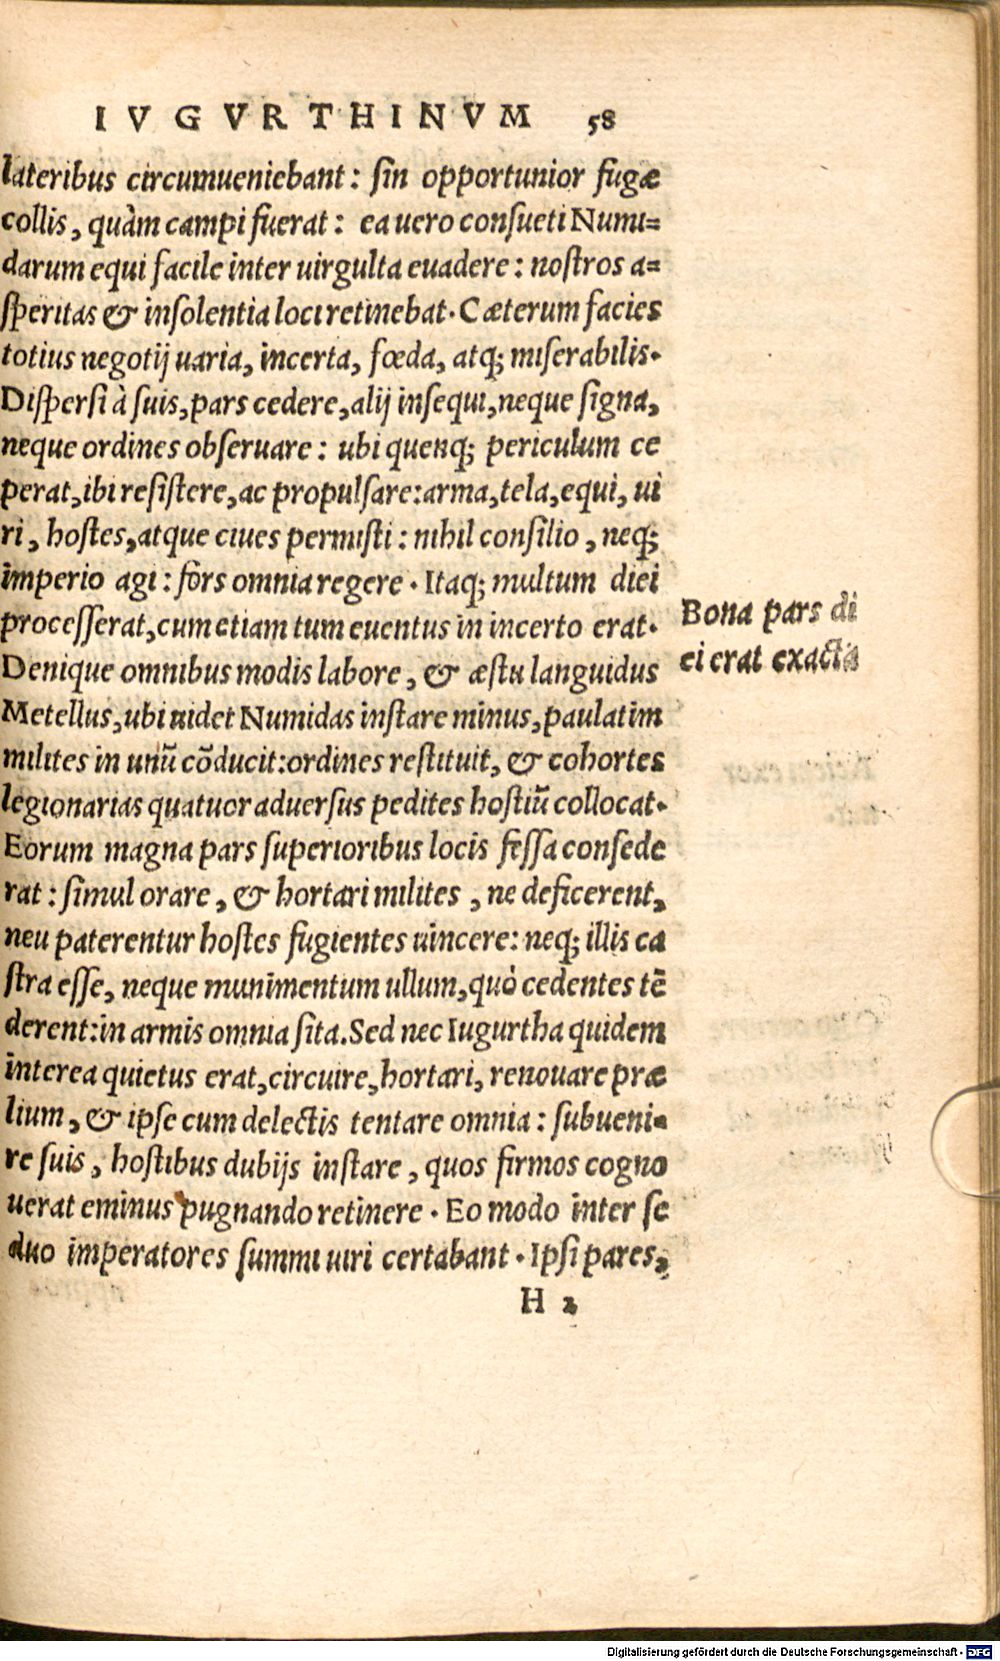 IVGVRTHINVM 58
lateribus circumueniebant: sin opportunior fugæ
collis, quàm campi fuerat: ea uero consueti Numi=
darum equi facile inter uirgulta euadere: nostros a=
speritas & insolentia loci retinebat. Cæterum facies
totius negotij uaria, incerta, fœda, atq; miserabilis.
Dispersi à suis, pars cedere, alij insequi, neque signa,
neque ordines obseruare: ubi quenq; periculum ce
perat, ibi resistere, ac propulsare: arma, tela, equi, ui
ri, hostes, atque ciues permisti: nihil consilio, neq;
imperio agi: fors omnia regere. Itaq; multum diei
processerat, cum etiam tum euentus in incerto erat.
Denique omnibus modis labore, & æstu languidus
Metellus, ubi uidet Numidas instare minus, paulatim
milites in unũ cõducit: ordines restituit, & cohortes
legionarias quatuor aduersus pedites hostiũ collocat.
Eorum magna pars superioribus locis fessa consede
rat: simul orare, & hortari milites, ne deficerent,
neu paterentur hostes fugientes uincere: neq; illis ca
stra esse, neque munimentum ullum, quò cedentes tẽ
derent: in armis omnia sita. Sed nec Iugurtha quidem
interea quietus erat, circuire, hortari, renouare præ
lium, & ipse cum delectis tentare omnia: subueni=
re suis, hostibus dubijs instare, quos firmos cogno
uerat eminus pugnando retinere. Eo modo inter se
duo imperatores summi uiri certabant. Ipsi pares,
H 2
Bona pars di
ei erat exacta
Digitalisierung gefördert durch die Deutsche Forschungsgemeinschaft - DFG